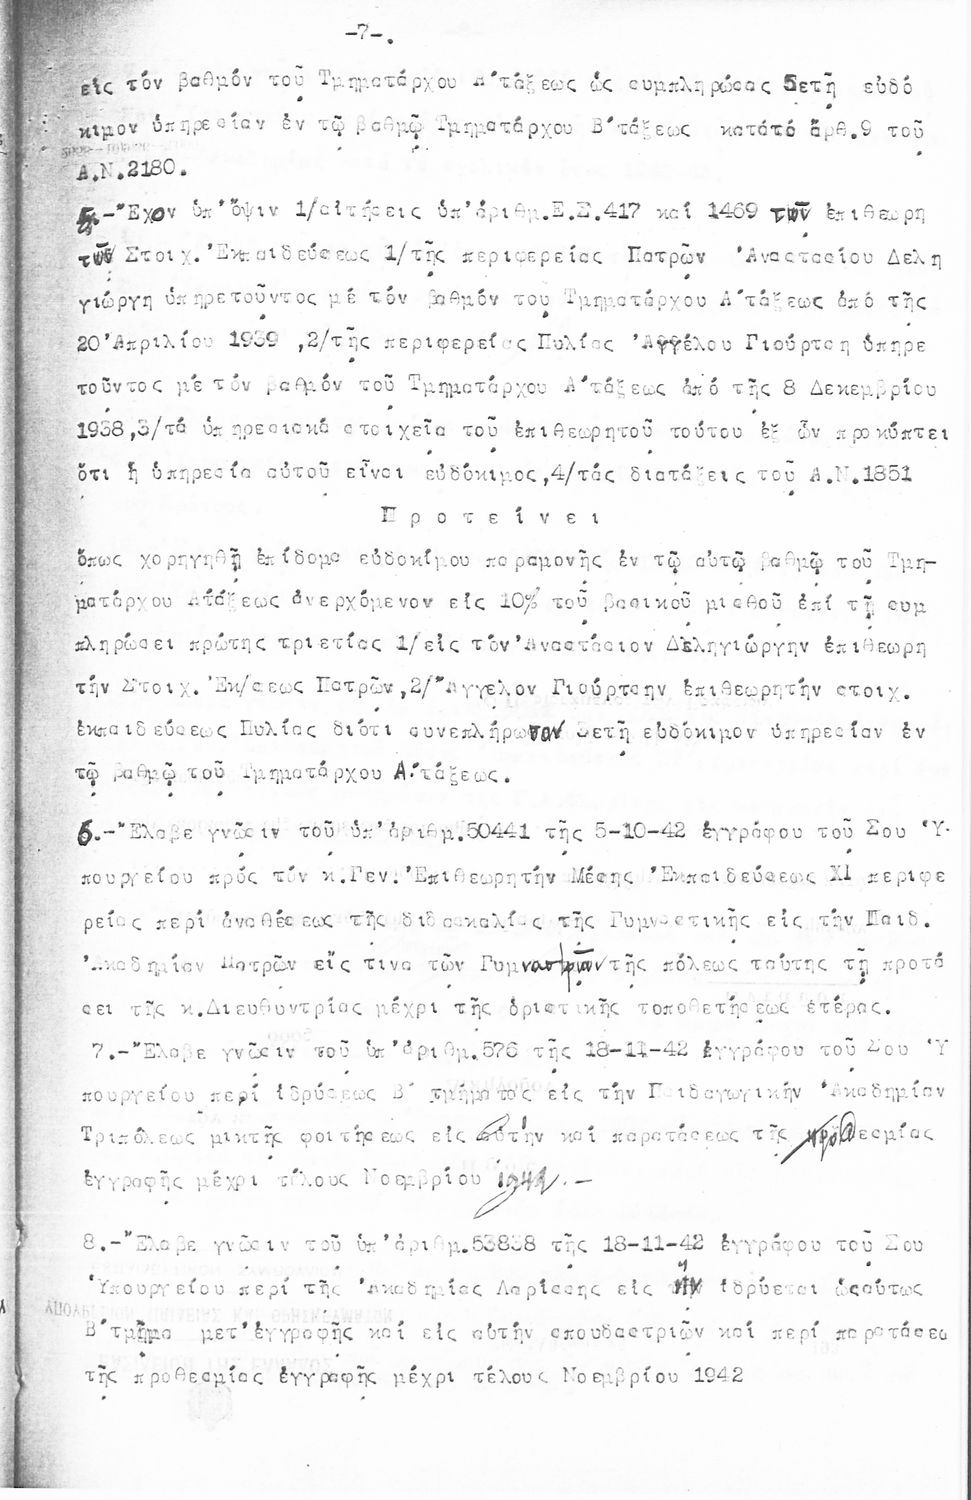 -7-.
εἰς τόν βαθμόν τοῦ Τμηματάρχου Α'τάξεως ὡς συμπληρώσας 5ετῆ εὐδό
κιμον ὑπηρεσίαν ἐν τῷ βαθμῷ Τμηματάρχου Β'τάξεως κατάτό ἄρθ.9 τοῦ
Α.Ν.2180.
5.-Ἔχον ὑπ'ὄψιν 1/αἰτήσεις ὑπ'ἀριθμ.Ε.Σ.417 καί 1469 τῶν ἐπιθεωρη
τῶν Στοιχ.Ἐκπαιδεύσεως 1/τῆς περιφερείας Πατρῶν Ἀναστασίου Δελη
γιώργη ὑπηρετοῦντος μέ τόν βαθμόν του Τμηματάρχου Α'τάξεως ἀπό τῆς
20 Ἀπριλίου 1939 ,2/τῆς περιφερείας Πυλίας Ἀγγέλου Γιούρτση ὑπηρε
τοῦντος μέ τόν βαθμόν τοῦ Τμηματάρχου Α'τάξεως ἀπό τῆς 8 Δεκεμβρίου
1938,3/τά ὑπηρεσιακά στοιχεῖα τοῦ ἐπιθεωρητοῦ τούτου ἐξ ὧν προκύπτει
ὅτι ἡ ὑπηρεσία αὐτοῦ εἶναι εὐδόκιμος,4/τάς διατάξεις τοῦ Α.Ν.1851
Π ρ ο τ ε ί ν ε ι
ὅπως χορηγηθῇ ἐπίδομα εὐδοκίμου παραμονῆς ἐν τῷ αὐτῷ βαθμῷ τοῦ Τμη-
ματάρχου Α'τάξεως ἀνερχόμενον εἰς 10% τοῦ βασικοῦ μισθοῦ ἐπί τῇ συμ
πληρώσει πρώτης τριετίας 1/εἰς τόν Ἀναστάσιον Δεληγιώργην ἐπιθεωρη
τήν Στοιχ.Ἐκ/σεως Πατρῶν,2/Ἄγγελον Γιούρτσην ἐπιθεωρητήν στοιχ.
ἐκπαιδεύσεως Πυλίας διότι συνεπλήρωσαν 3ετῆ εὐδόκιμον ὑπηρεσίαν ἐν
τῷ βαθμῷ τοῦ Τμηματάρχου Α'τάξεως.
6.-Ἔλαβε γνῶσιν τοῦ ὑπ'ἀριθμ.50441 τῆς 5-10-42 ἐγγράφου τοῦ Σου Ὑ-
πουργείου πρός τόν κ.Γεν.Ἐπιθεωρητήν Μέσης Ἐκπαιδεύσεως ΧΙ περιφε
ρείας περί ἀναθέσεως τῆς διδασκαλίας τῆς Γυμναστικῆς εἰς τήν Παιδ.
Ἀκαδημίαν Πατρῶν εἴς τινα τῶν Γυμναστριῶν τῆς πόλεως ταύτης τῇ προτά
σει τῆς κ.Διευθυντρίας μέχρι τῆς ὁριστικῆς τοποθετήσεως ἑτέρας.
7.-Ἔλαβε γνῶσιν τοῦ ὑπ'ἀριθμ.576 τῆς 18-11-42 ἐγγράφου τοῦ Σου Ὑ
πουργείου περί ἱδρύσεως Β' τμήματος εἰς τήν Παιδαγωγικήν Ἀκαδημίαν
Τριπόλεως μικτῆς φοιτήσεως εἰς αὐτήν καί παρατάσεως τῆς προθεσμίας
ἐγγραφῆς μέχρι τέλους Νοεμβρίου 1942.-
8.-Ἔλαβε γνῶσιν τοῦ ὑπ'ἀριθμ.53838 τῆς 18-11-42 ἐγγράφου τοῦ Σου
Ὑπουργείου περί τῆς Ἀκαδημίας Λαρίσσης εἰς ἥν ἱδρύεται ὡσαύτως
Β'τμῆμα μετ'ἐγγραφῆς καί εἰς αὐτήν σπουδαστριῶν καί περί παρατάσεω
τῆς προθεσμίας ἐγγραφῆς μέχρι τέλους Νοεμβρίου 1942